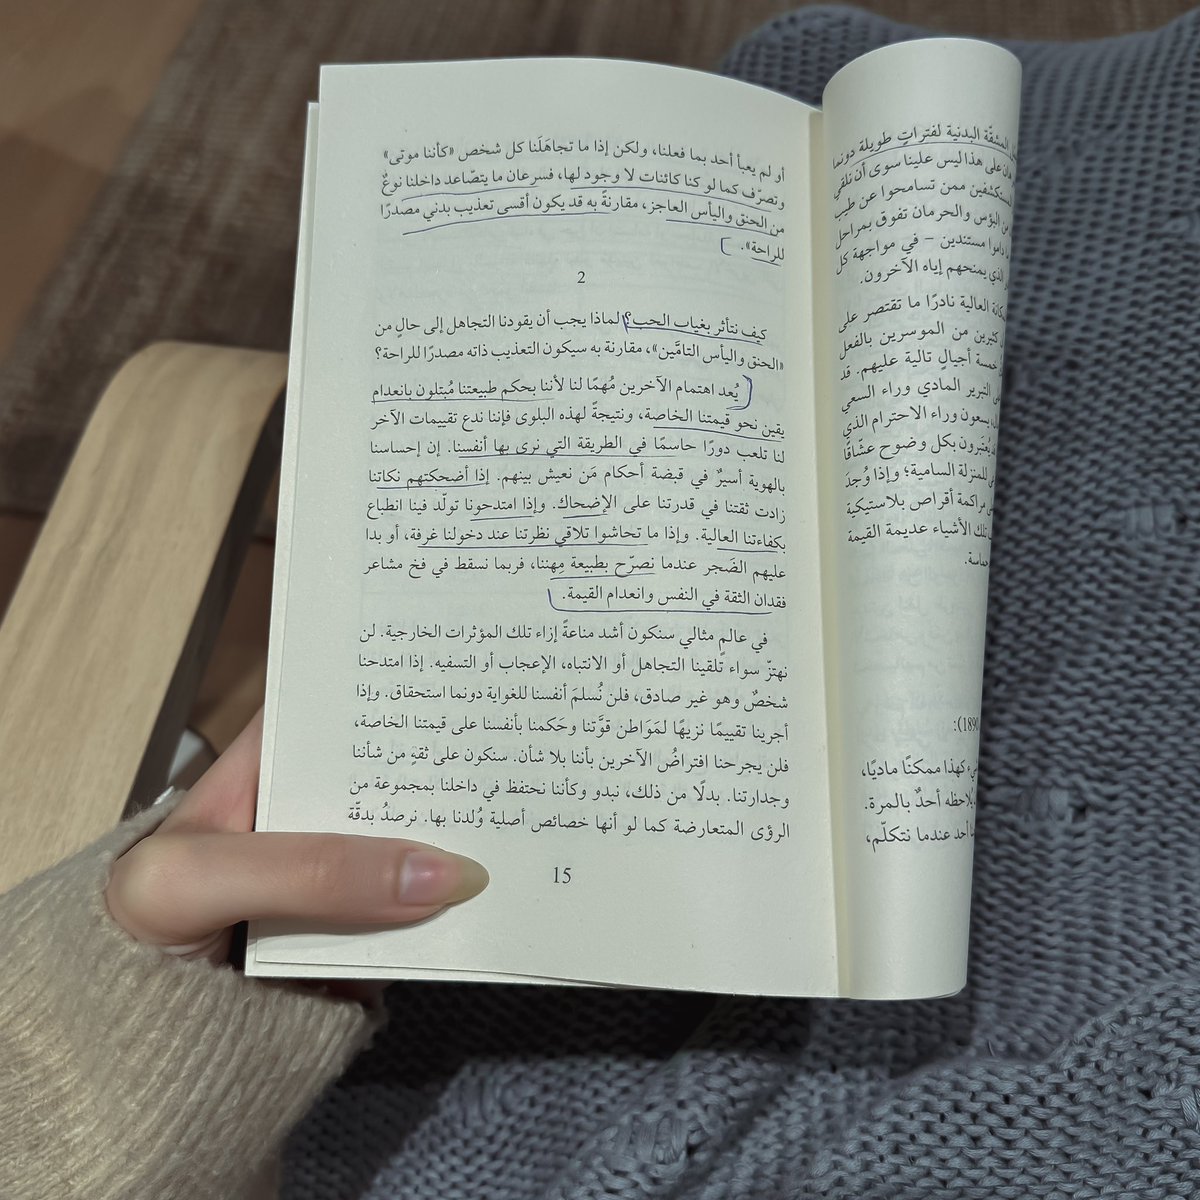 أو لم يعبأ أحد بما فعلنا، ولكن إذا ما تجاهَلَنا كل شخص «كأننا موتى»
وتصرّف كما لو كنا كائنات لا وجود لها، فسرعان ما يتصّاعد داخلنا نوعٌ
من الحنق واليأس العاجز، مقارنةً به قد يكون أقسى تعذيب بدني مصدرًا
للراحة».
2
كيف نتأثر بغياب الحب؟ لماذا يجب أن يقودنا التجاهل إلى حالٍ من
«الحنق واليأس التامَّين»، مقارنة به سيكون التعذيب ذاته مصدرًا للراحة؟
يُعد اهتمام الآخرين مُهمًا لنا لأننا بحكم طبيعتنا مُبتلون بانعدام
يقين نحو قيمتنا الخاصة، ونتيجةً لهذه البلوى فإننا ندع تقييمات الآخر
لنا تلعب دورًا حاسمًا في الطريقة التي نرى بها أنفسنا. إن إحساسنا
بالهوية أسيرٌ في قبضة أحكام مَن نعيش بينهم. إذا أضحكتهم نكاتنا
زادت ثقتنا في قدرتنا على الإضحاك. وإذا امتدحونا تولّد فينا انطباع
بكفاءتنا العالية. وإذا ما تحاشوا تلاقي نظرتنا عند دخولنا غرفة، أو بدا
عليهم الضَجر عندما نصرّح بطبيعة مِهننا، فربما نسقط في فخ مشاعر
فقدان الثقة في النفس وانعدام القيمة.
في عالمٍ مثالي سنكون أشد مناعةً إزاء تلك المؤثرات الخارجية. لن
نهتزّ سواء تلقينا التجاهل أو الانتباه، الإعجاب أو التسفيه. إذا امتدحنا
شخصٌ وهو غير صادق، فلن نُسلمَ أنفسنا للغواية دونما استحقاق. وإذا
أجرينا تقييمًا نزيهًا لمَوَاطن قوَّتنا وحَكمنا بأنفسنا على قيمتنا الخاصة،
فلن يجرحنا افتراضُ الآخرين بأننا بلا شأن. سنكون على ثقةٍ من شأننا
وجدارتنا. بدلًا من ذلك، نبدو وكأننا نحتفظ في داخلنا بمجموعة من
الرؤى المتعارضة كما لو أنها خصائص أصلية وُلدنا بها. نرصدُ بدقّة
15
المشقّة البدنية لفتراتٍ طويلة دونما
على هذا ليس علينا سوى أن نلقي
المستكشفين ممن تسامحوا عن طيب
من البؤس والحرمان تفوق بمراحل
داموا مستندين – في مواجهة كل
الذي يمنحهم إياه الآخرون.
العالية نادرًا ما تقتصر على
كثيرين من الموسرين بالفعل
خمسة أجيالٍ تالية عليهم. قد
التبرير المادي وراء السعي
يسعون وراء الاحترام الذي
يُعتبرون بكل وضوح عشّاقًا
للمنزلة السامية؛ وإذا وُجدَ
مراكمة أقراص بلاستيكية
تلك الأشياء عديمة القيمة
1890):
كهذا ممكنًا ماديًا،
يُلاحظه أحدٌ بالمرة.
أحد عندما نتكلّم،